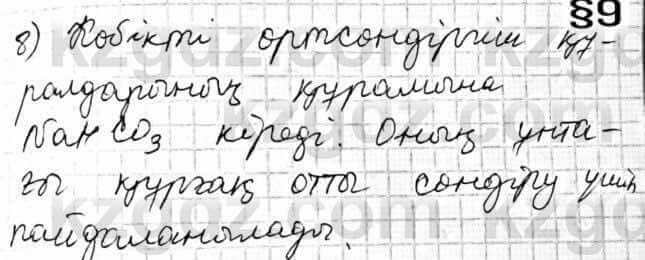 §9
8) Көбікті өртсөндіргіш құ-
ралдарының құрамына
NaHCO₃ кіреді. Оның ұнта-
ғы құрғақ отты сөндіру үшін
пайдаланылады.